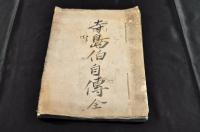 寺島伯自傳 全